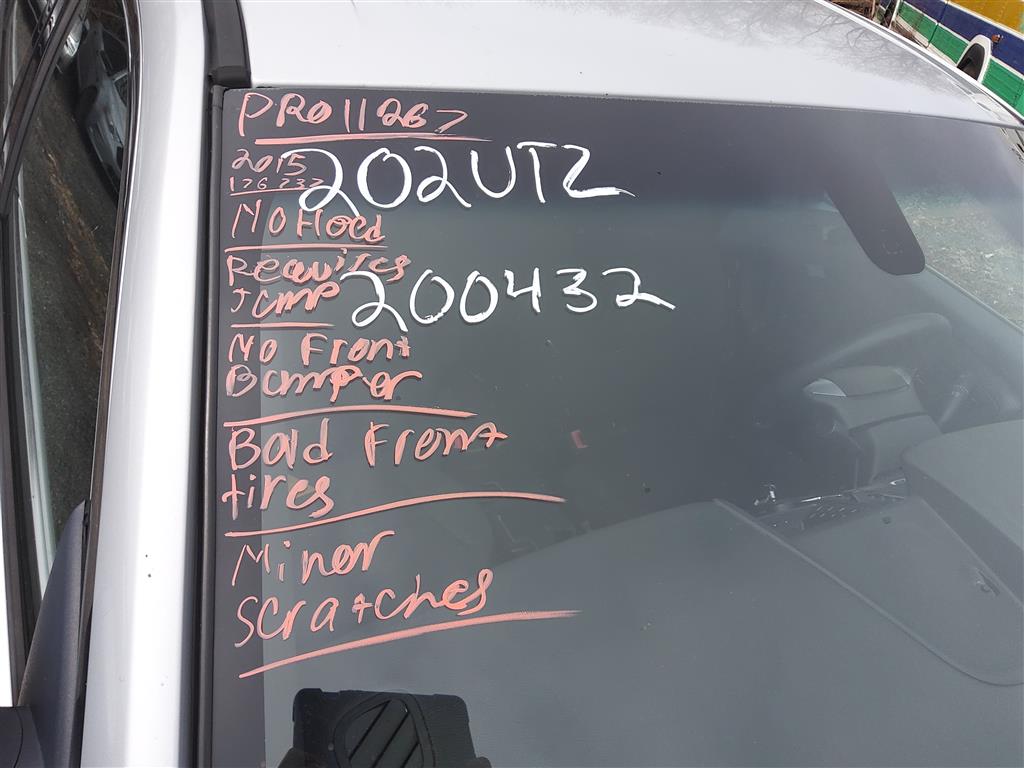 PRO11267
2015
202UTZ
176 732
No Hood
Requires
Jump
200432
No Front
Bumper
Bald Front
tires
Minor
scratches